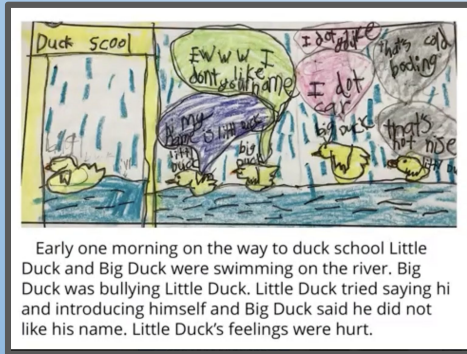 Duck Scool
EWWW I
dont like
your name
my
name is little duck
little
duck
big
duck
I dot like
you
I dot
car
big duck
that's cald
boding
that's
not nise
little du
Early one morning on the way to duck school Little
Duck and Big Duck were swimming on the river. Big
Duck was bullying Little Duck. Little Duck tried saying hi
and introducing himself and Big Duck said he did not
like his name. Little Duck's feelings were hurt.